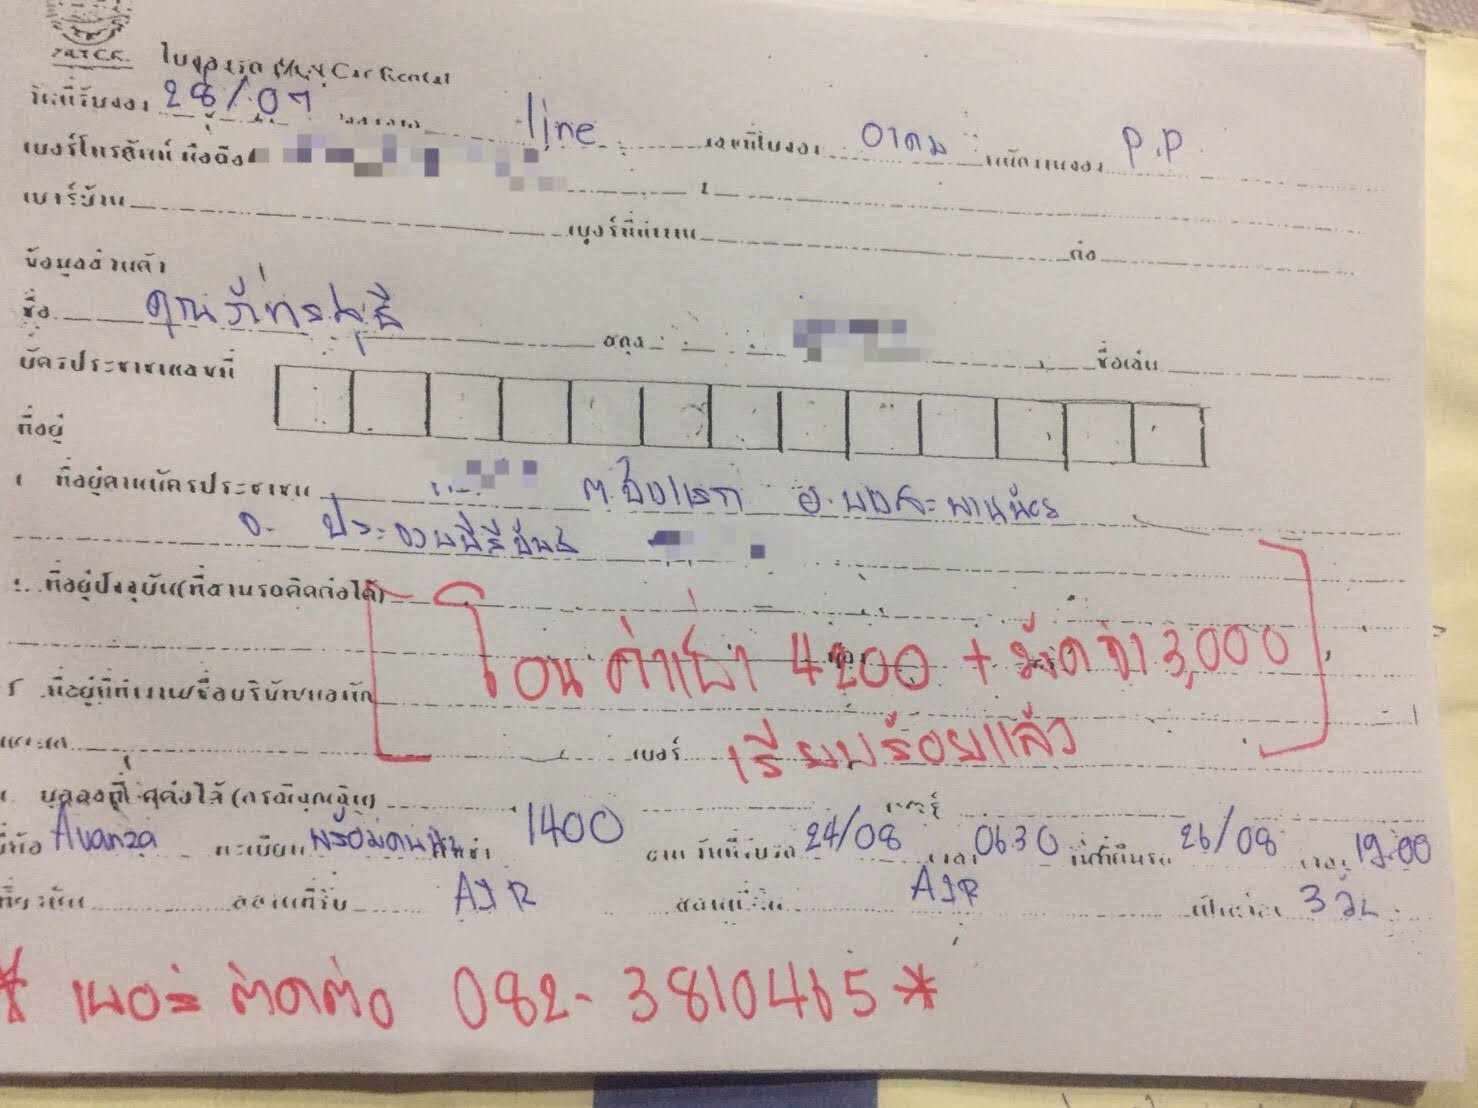 ใบจองรถ Car Rental
วันที่รับจอง 28/07 line เลขที่ใบจอง อาคม พนักงานจอง P.P
เบอร์โทรศัพท์ มือถือ
เบอร์บ้าน เบอร์ที่ทำงาน ต่อ
ข้อมูลส่วนตัว
ชื่อ คุณภัทรวุธิ สกุล ชื่อเล่น
บัตรประชาชนเลขที่
ที่อยู่
ที่อยู่ตามบัตรประชาชน อ.บางสะพานน้อย
จ. ประจวบคีรีขันธ์
ที่อยู่ปัจจุบัน(ที่สามารถติดต่อได้)
โอนค่าเช่า 4200 + มัดจำ 3,000
ที่อยู่ที่ทำงาน/ชื่อบริษัท/แผนก
เบอร์ เรียบร้อยแล้ว
บุคคลที่ (กรณีฉุกเฉิน) เบอร์
ยี่ห้อ Avanza ทะเบียน พร้อมคนขับ ค่าเช่า 1400 วันที่รับรถ 24/08 เวลา 0630 วันที่คืนรถ 26/08 เวลา 19.00
สถานที่รับ AIR สถานที่คืน AIR เป็นเวลา 3 วัน
* เบอร์ ติดต่อ 082-3810465 *